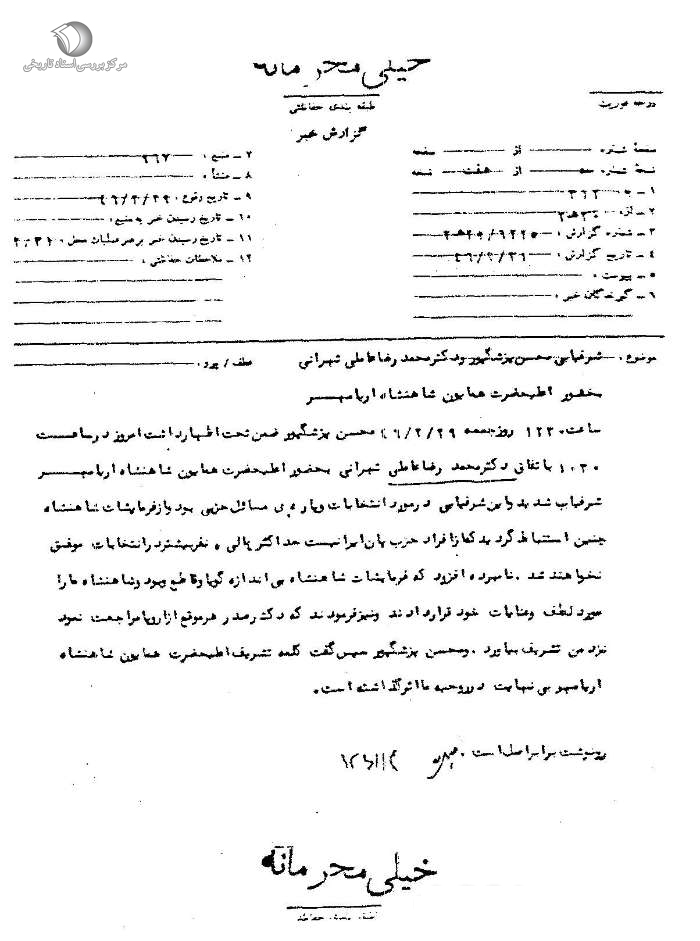 مرکز بررسی اسناد تاریخی
خیلی محرمانه
طبقه بندی حفاظتی
درجه فوریت
گزارش خبر
صفحهٔ شماره از صفحه
نسخهٔ شماره سه از هفت نسخه
۱ ـ به ۳۶۲
۲ ـ از
۳ ـ شماره گزارش : ۶۲۲۵/۲۰ ﻫ ۲
۴ ـ تاریخ گزارش : ۴۶/۲/۳۱
۵ ـ پیوست :
۶ ـ گیرندگان خبر :
۷ ـ منبع : ۲۶۷
۸ ـ منشأ :
۹ ـ تاریخ وقوع : ۴۶/۲/۲۹
۱۰ ـ تاریخ رسیدن خبر به منبع :
۱۱ ـ تاریخ رسیدن خبر به رهبر عملیات محل
۱۲ ـ ملاحظات حفاظتی :
موضوع : شرفیابی محسن پزشگپور و دکتر محمد رضا عاملی تهرانی
عطف / پیرو :
بحضور اعلیحضرت همایون شاهنشاه آریامهر
ساعت ۱۲۳۰ روز جمعه ۴۶/۲/۲۹ محسن پزشگپور ضمن تحت اظهار داشت امروز در ساعت
۱۰۳۰ باتفاق دکتر محمد رضا عاملی تهرانی بحضور اعلیحضرت همایون شاهنشاه آریامهر
شرفیاب شدید و این شرفیابی در مورد انتخابات و پاره ی مسائل حزبی بود و از فرمایشات شاهنشاه
چنین استنباط گردید که از افراد حزب پان ایرانیست حداکثر یالی ۶ نفر بیشتر در انتخابات موفق
نخواهند شد . نامبرده افزود که فرمایشات شاهنشاه بی اندازه گویا و قاطع بود و شاهنشاه ما را
مورد لطف و عنایات خود قرار دادند و نیز فرمودند که دکتر صدر هر موقع از اروپا مراجعت نمود
نزد من تشریف بیاورد . و محسن پزشگپور سپس گفت کلمه تشریف اعلیحضرت همایون شاهنشاه
آریامهر بی نهایت در روحیه ما اثر گذاشته است .
رونوشت برابر اصل است .
خیلی محرمانه
طبقه بندی حفاظتی